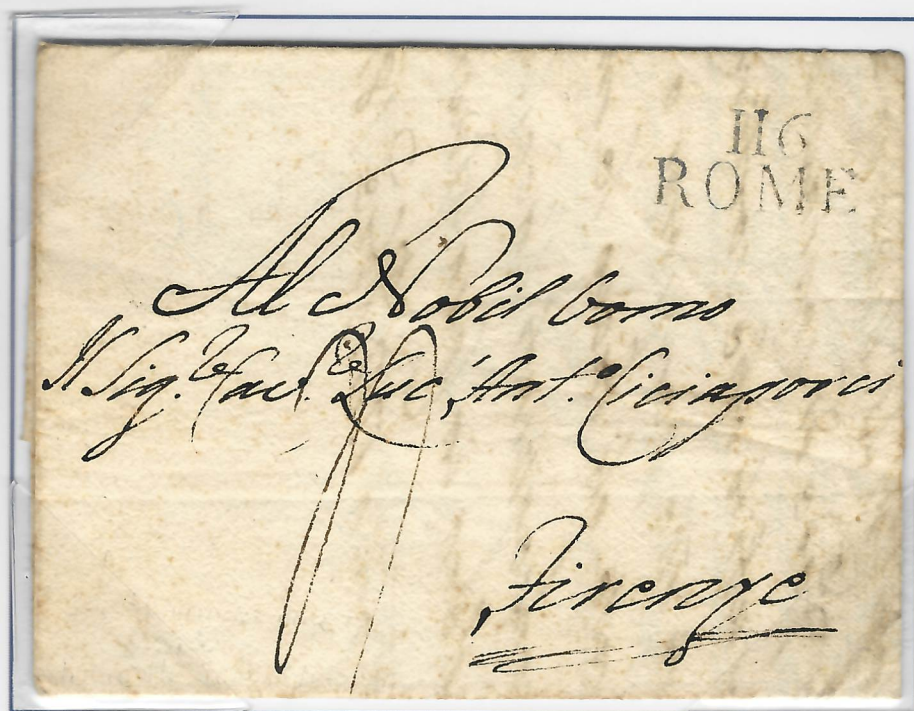 116
ROME
Al Nobil Uomo
Il Sig.re Cav.re Luc'Ant.o Ciciaporci
Firenze